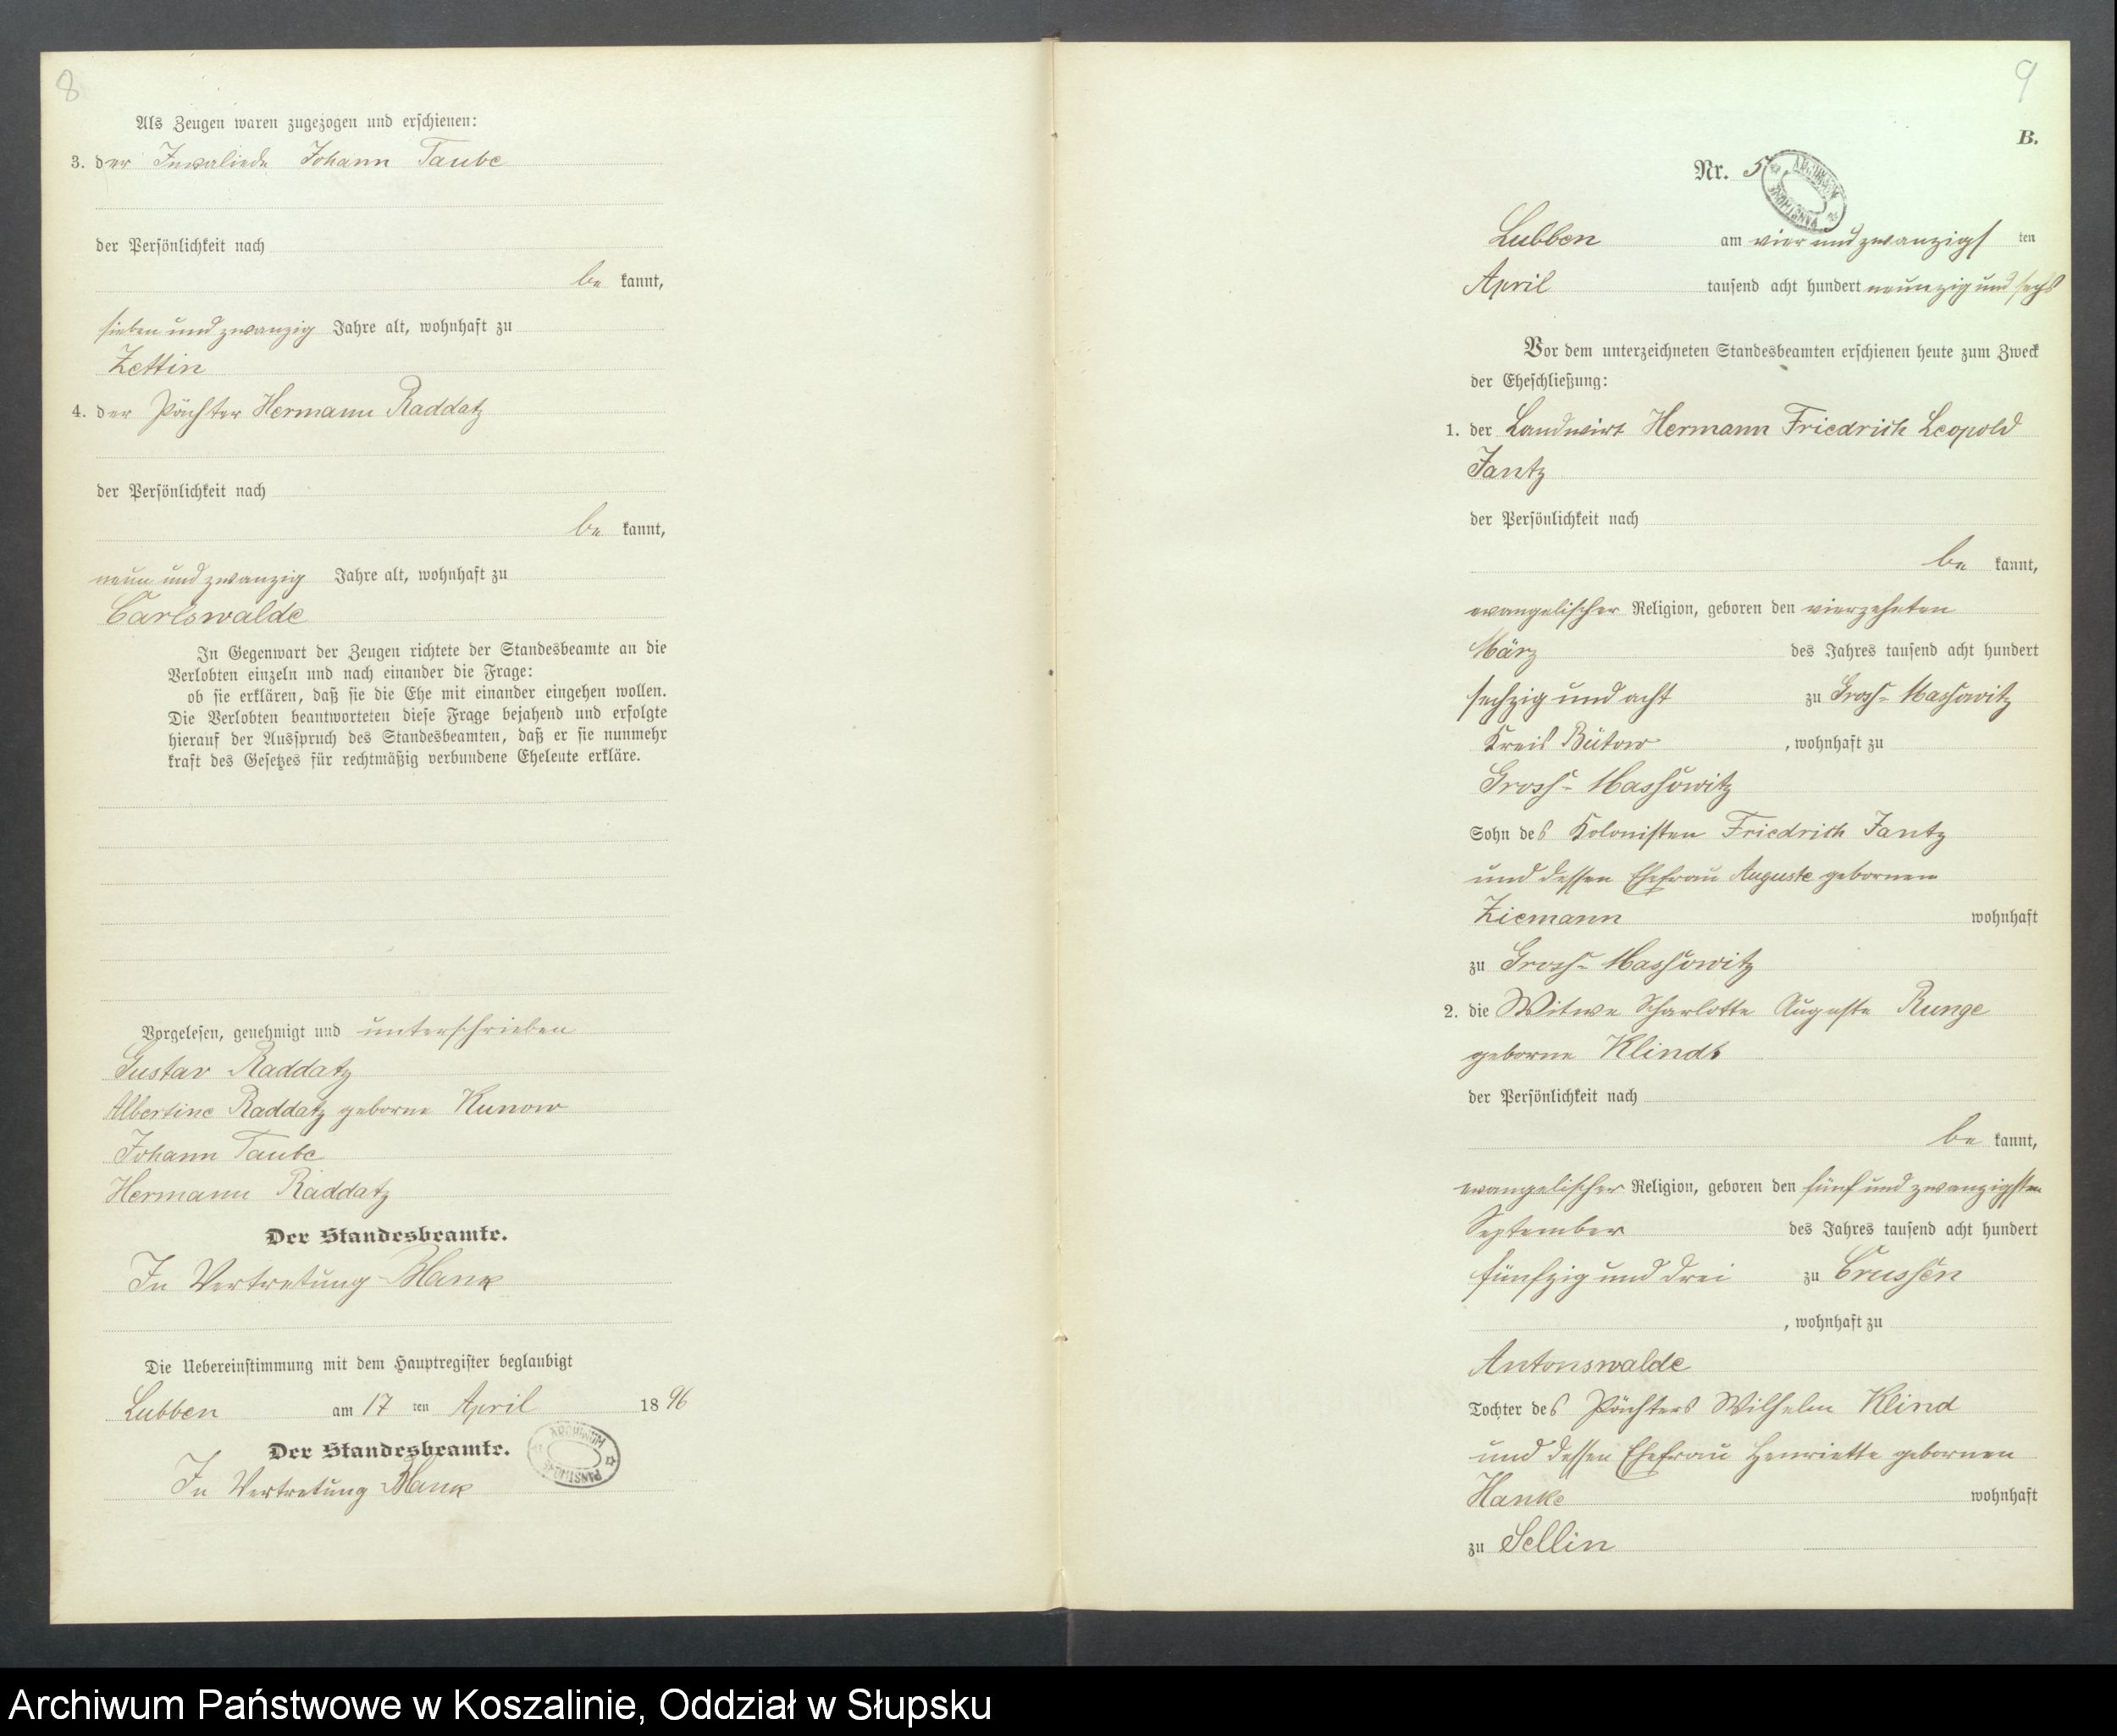 8
Als Zeugen waren zugezogen und erschienen:
3. der Invaliede Johann Taube
der Persönlichkeit nach
be kannt,
sieben und zwanzig Jahre alt, wohnhaft zu
Zettin
4. der Pächter Hermann Raddatz
der Persönlichkeit nach
be kannt,
neun und zwanzig Jahre alt, wohnhaft zu
Carlswalde
In Gegenwart der Zeugen richtete der Standesbeamte an die
Verlobten einzeln und nach einander die Frage:
ob sie erklären, daß sie die Ehe mit einander eingehen wollen.
Die Verlobten beantworteten diese Frage bejahend und erfolgte
hierauf der Ausspruch des Standesbeamten, daß er sie nunmehr
kraft des Gesetzes für rechtmäßig verbundene Eheleute erkläre.
Vorgelesen, genehmigt und unterschrieben
Gustav Raddatz
Albertine Raddatz geborne Kunow
Johann Taube
Hermann Raddatz
Der Standesbeamte.
In Vertretung
Die Uebereinstimmung mit dem Hauptregister beglaubigt
Lubben am 17 ten April 18 96
Der Standesbeamte.
In Vertretung
9
B.
Nr. 5
Lubben am vier und zwanzigs ten
April tausend acht hundert neunzig und sechs
Vor dem unterzeichneten Standesbeamten erschienen heute zum Zweck
der Eheschließung:
1. der Landwirt Hermann Friedrich Leopold
Jantz
der Persönlichkeit nach
be kannt,
evangelischer Religion, geboren den vierzehnten
März des Jahres tausend acht hundert
sechzig und acht zu Gross-Massowitz
Kreis Bütow, wohnhaft zu
Gross-Massowitz
Sohn des Kolonisten Friedrich Jantz
und dessen Ehefrau Auguste gebornen
Ziemann wohnhaft
zu Gross-Massowitz
2. die Witwe Scharlotte Auguste Runge
geborne Klindt
der Persönlichkeit nach
be kannt,
evangelischer Religion, geboren den fünf und zwanzigsten
September des Jahres tausend acht hundert
fünfzig und drei zu Crussen
, wohnhaft zu
Antonswalde
Tochter des Pächters Wilhelm Klind
und dessen Ehefrau Henriette gebornen
Hanke wohnhaft
zu Sellin
Archiwum Państwowe w Koszalinie, Oddział w Słupsku